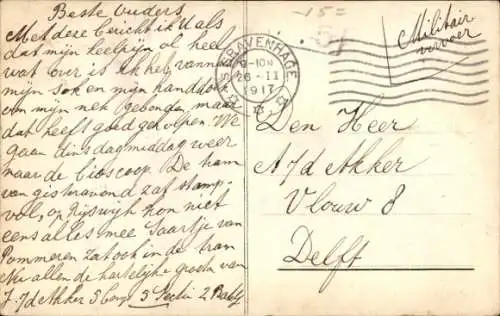 Beste Ouders
Met deze bericht ik U als
dat mijn keelpijn al heel
wat over is ik heb vannacht
mijn sok en mijn handdoek
om mijn nek gebonden maar
dat heeft goed geholpen. We
gaan dinsdagmiddag weer
naar de bioscoop. De tram
van gisteravond zat stamp-
vol, op Rijswijk kon niet
eens alles mee Saartje van
Pommeren zat ook in de tram
Nu allen de hartelijke groeten van
J. A/d Akker 3 Comp 3 Sectie 2 Bat
'S GRAVENHAGE
9-10N
26-II
1917
-15=
Militair
vervoer
Den Heer
A/d Akker
Vlouw 8
Delft